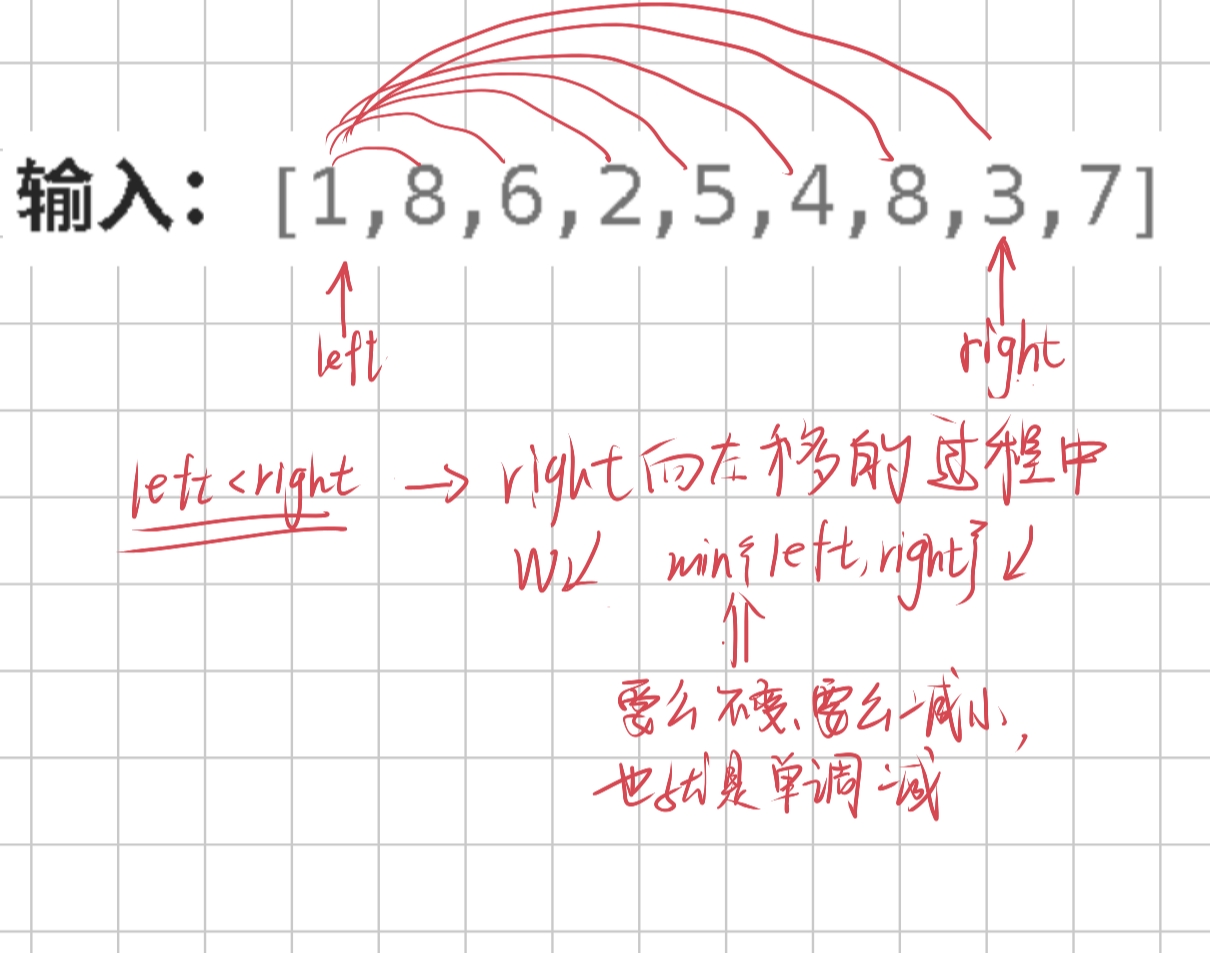 输入： [1,8,6,2,5,4,8,3,7]
left right
left<right → right向左移的过程中
W↙ min{left,right}↙
要么不变、要么减小，
也就是单调减